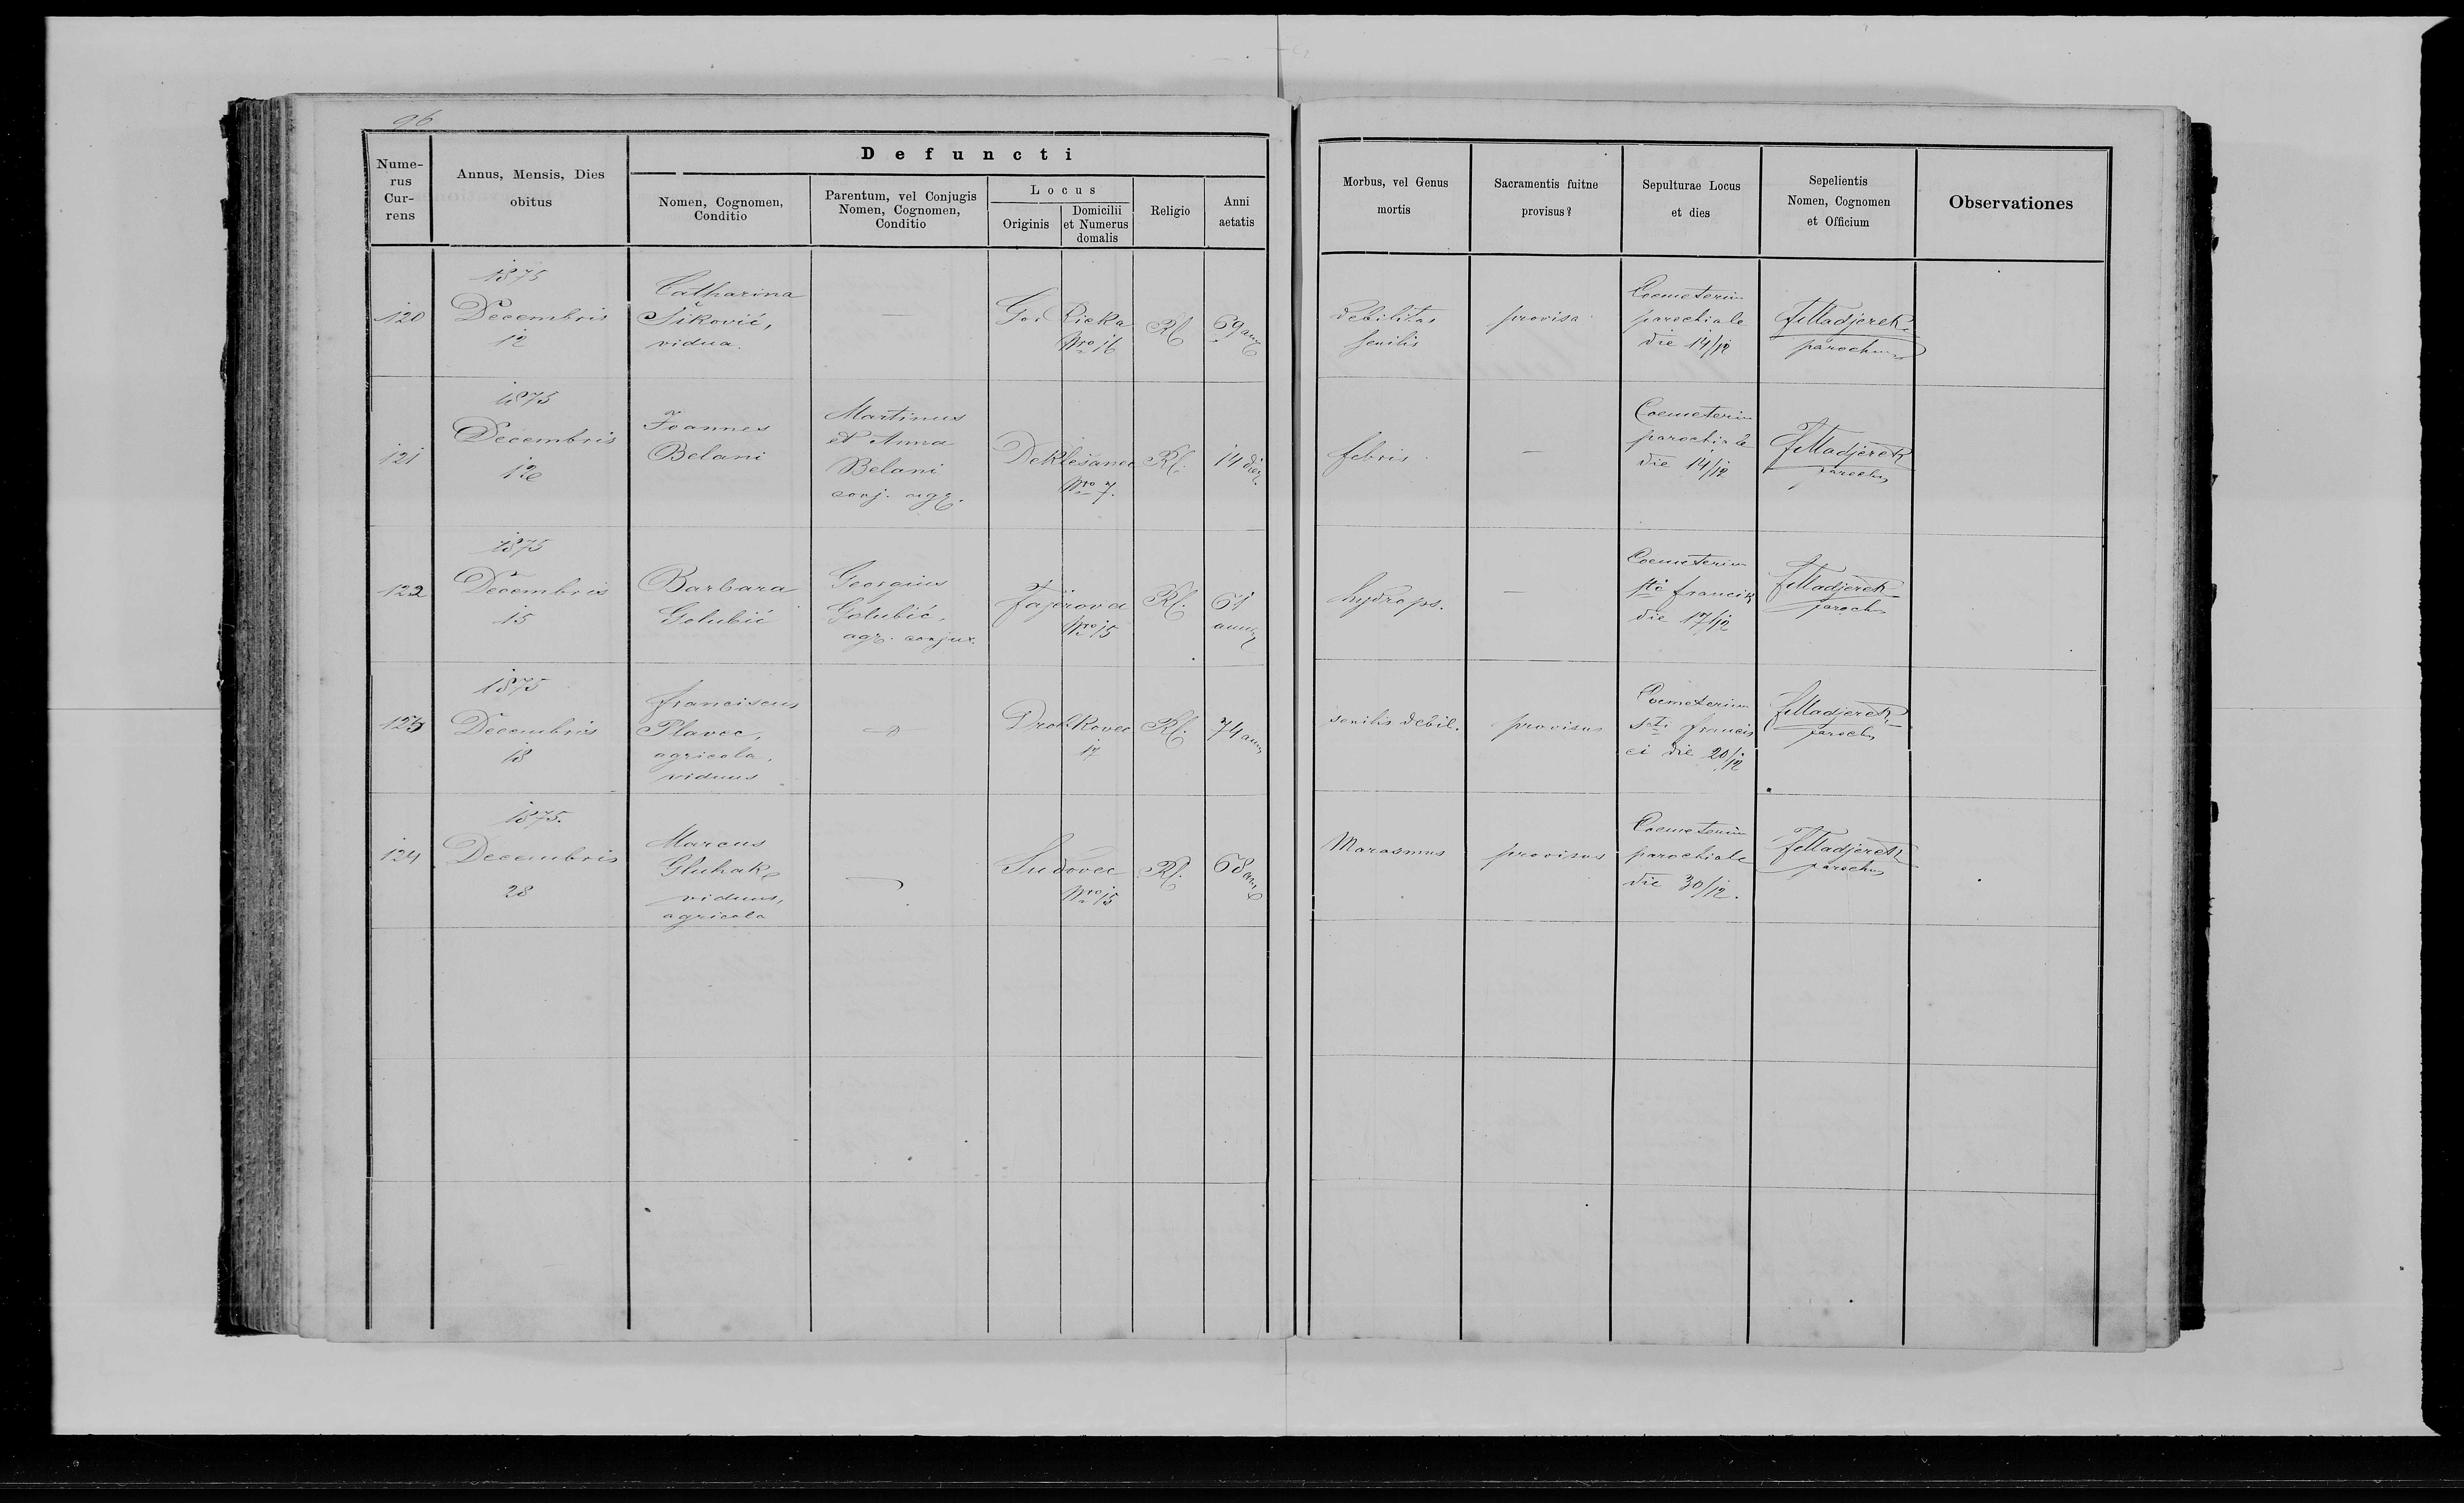 96
Defuncti
Nume-
rus
Cur-
rens
Annus, Mensis, Dies
obitus
Nomen, Cognomen,
Conditio
Parentum, vel Conjugis
Nomen, Cognomen,
Conditio
Locus
Originis
Domicilii
et Numerus
domalis
Religio
Anni
aetatis
Morbus, vel Genus
mortis
Sacramentis fuitne
provisus?
Sepulturae Locus
et dies
Sepelientis
Nomen, Cognomen
et Officium
Observationes
120
1875
Decembris
12
Catharina
Šiković,
vidua.
—
Gor Rieka
Nro 16
RC
69
debilitas
senilis
provisa
Coemeterium
parochiale
die 14/12
F Madjerek
parochus
121
1875
Decembris
12
Joannes
Belani
Martinus
et Anna
Belani
conj. agr.
Deklešanec
Nro 7.
RC.
14 dies
febris
—
Coemeterium
parochiale
die 14/12
F Madjerek
parochus
122
1875
Decembris
15
Barbara
Golubić
Georgius
Golubić,
agr. conjux.
Fajerovec
Nro 15
RC.
61
hydrops.
—
Coemeterium
die 17/12
F Madjerek
paroch
123
1875
Decembris
18
Franciscus
Plavec,
agricola,
viduus
Drohkovec
17
RC.
74
senilis debil.
provisus
Coemeterium
Sti Francis
ci die 20/12
F Madjerek
parochus
124
1875.
Decembris
28
Marcus
Gluhak
viduus,
agricola
—
Sudovec
Nro 15
RC.
68
Marasmus
provisus
Coemeterium
parochiale
die 30/12.
F Madjerek
parochus